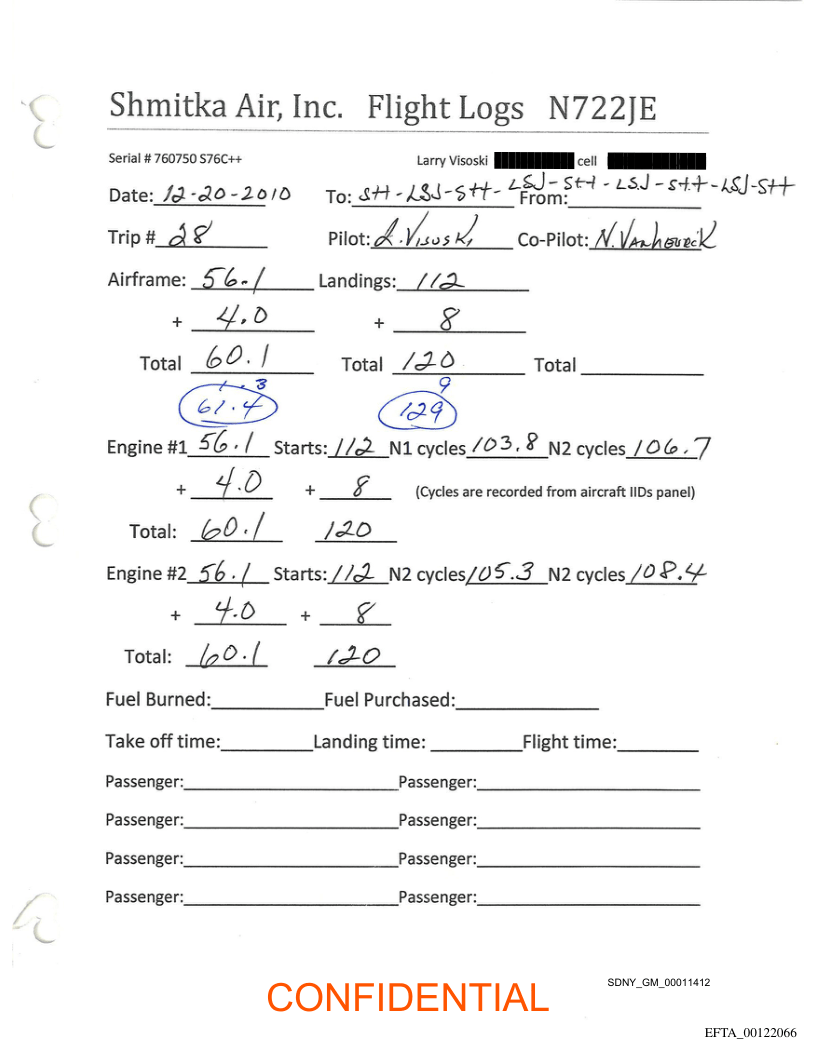 Shmitka Air, Inc. Flight Logs N722JE
Serial # 760750 S76C++ Larry Visoski cell
Date: 12-20-2010 To: STT-LSJ-STT-LSJ-STT-LSJ-STT-LSJ-STT From:
Trip # 28 Pilot: L. Visoski Co-Pilot: N. Vanhourck
Airframe: 56.1 Landings: 112
+ 4.0 + 8
Total 60.1 Total 120 Total
1.3 9
61.4 129
Engine #1 56.1 Starts: 112 N1 cycles 103.8 N2 cycles 106.7
+ 4.0 + 8 (Cycles are recorded from aircraft IIDs panel)
Total: 60.1 120
Engine #2 56.1 Starts: 112 N2 cycles 105.3 N2 cycles 108.4
+ 4.0 + 8
Total: 60.1 120
Fuel Burned: Fuel Purchased:
Take off time: Landing time: Flight time:
Passenger: Passenger:
Passenger: Passenger:
Passenger: Passenger:
Passenger: Passenger:
SDNY_GM_00011412
CONFIDENTIAL
EFTA_00122066